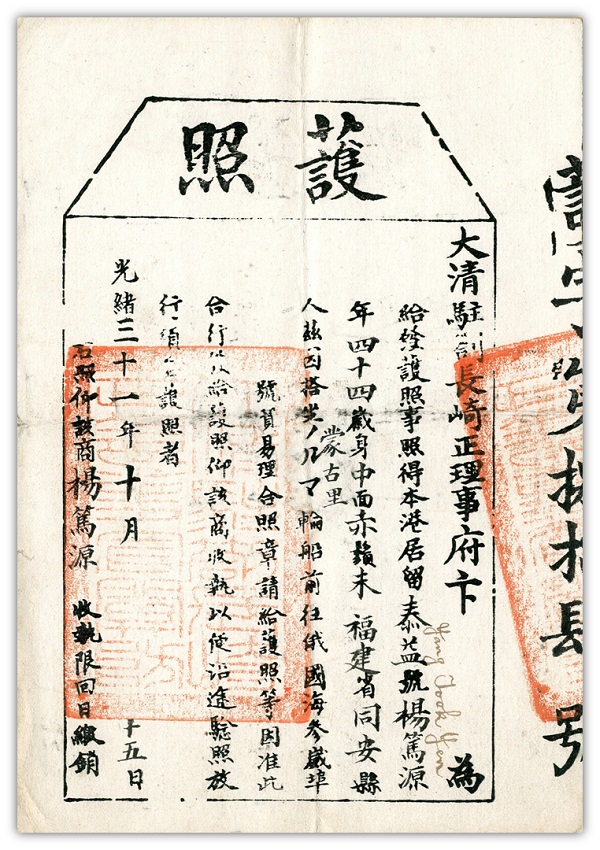 護照
大清駐劄長崎正理事府卞 為
給發護照事照得本港居留泰益號楊篤源
Yang Took Yen
年四十四歲身中面赤鬚未 福建省同安縣
人茲因搭坐ノルマ輪船前往俄國海參崴埠
蒙古里
號貿易理合照章請給護照等因准此
合行 給護照仰該商收執以便沿途驗照放
行須至護照者
光緒三十一年十月 十五日
右照仰該商楊篤源 收執限回日繳銷
號